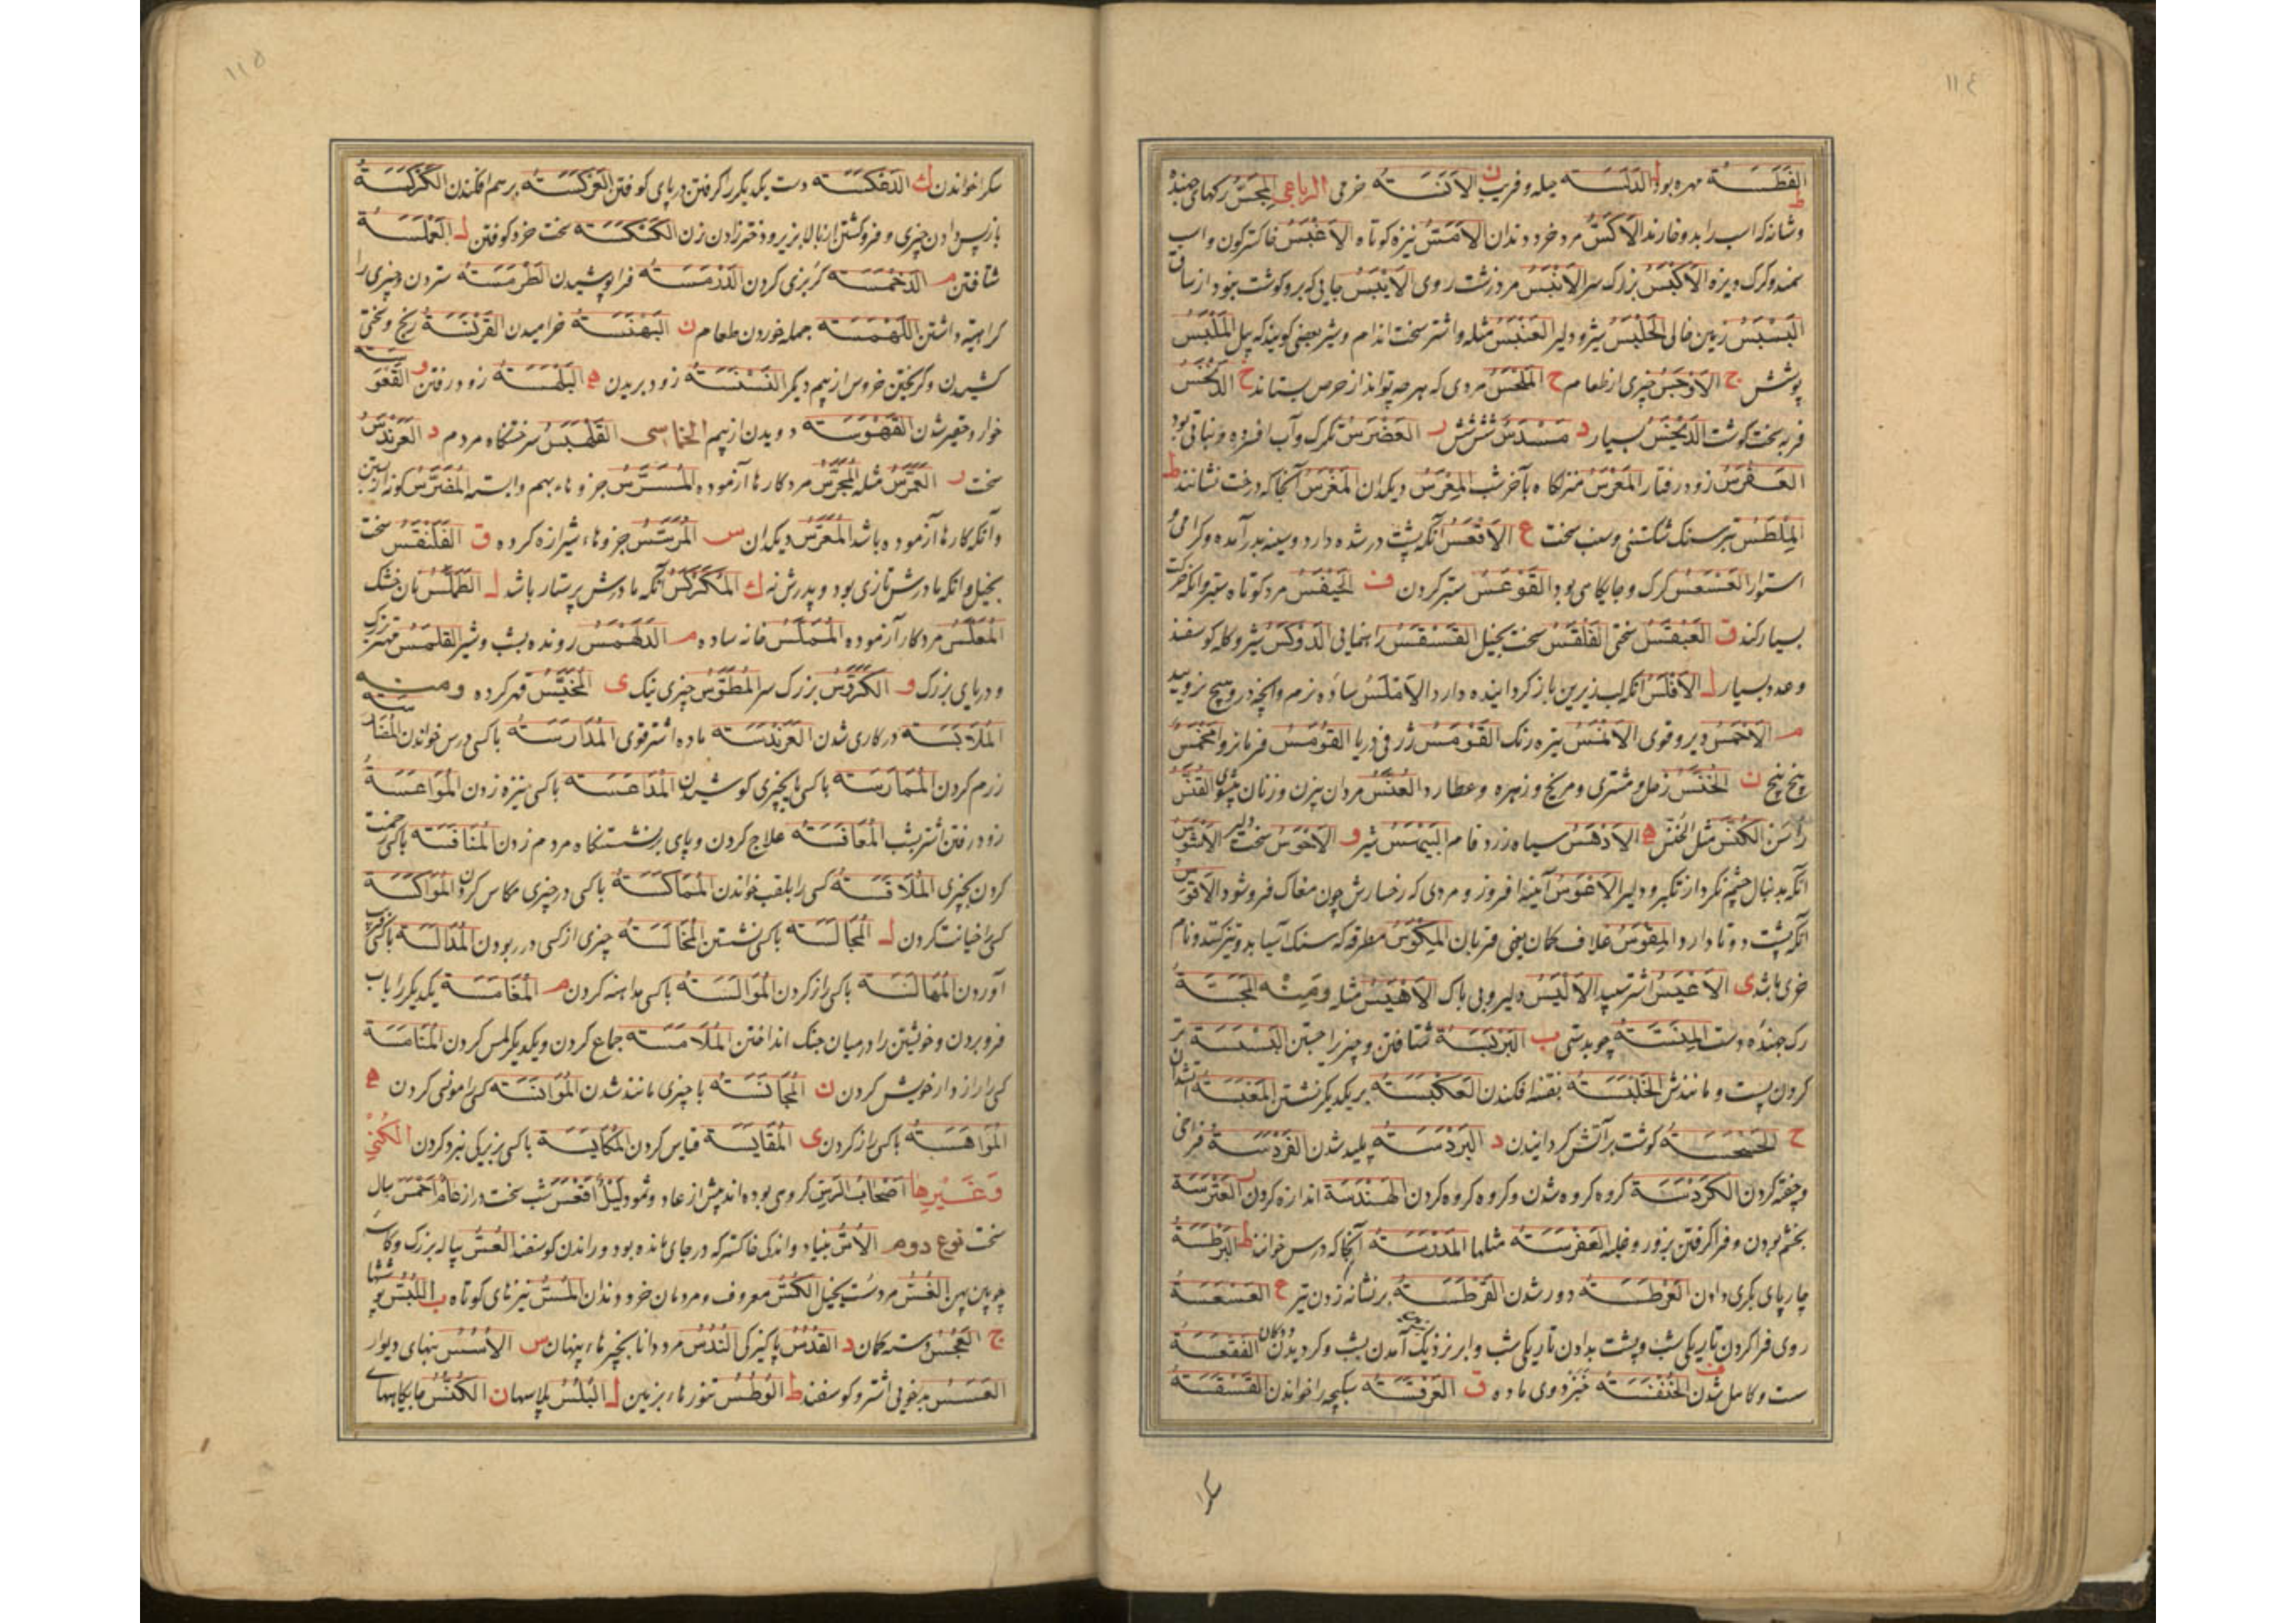 ١١٤
الفَطَسَة مهره بود ل الدَلَسَة حیله و فریب ن الاَنَسَة خرمی الرباعی المِجَسّ رکهای جهنده
و شانه که اسب را بدو خارند الاَکَسّ مرد خرد دندان الاَمَسّ نیزه کوتاه الاَغْبَس خاکسترکون و اسب
سمند و کرک و یزه الاَکْبَس بزرک سر الاَنْبَس مرد زشت روی الاَیْبَس جایی که برو کوشت نبود از ساق
البَسْبَس زمین خالی الحَلْبَس شیر و دلیر العَنْبَس مثله و اشتر سخت اندام و شیر بعضی کویند که پیل المَلْبَس
پوشش ج الاَوْجَس چیزی از طعام ح المِلْحَس مردی که هر چه تواند از حرص بستاند خ الدَخْس
فربه سخت کوشت الدَیْخَس بسیار د مَسْدَس شش شش ر العَضْرَس تکرک و آب افسرده و نباتی بود
زود رفتار المَعْرَس منزلکاه بآخر شب المِعْرَس دیکدان المَغْرَس آنجا که درخت نشانند ط
المِلْطَس تبر سنک شکستنی و سنب سخت ع الاَقْعَس آنکه پشت درشده دارد و سینه بدر آمده و کرامی و
استوار العَسْعَس کرک و جایکاهی بود القَوْعَس ستبر کردن ف الحَیْفَس مرد کوتاه ستبر و انکه حرکت
بسیار کند ق سختی الفَلْقَس سخت بخیل القَسْقَس راهنمائی الدَوْکَس شیر و کله کوسفند
و عدد بسیار ل انکه لب زیرین باز کردانیده دارد الاَمْلَس ساده و نرم و آنچه درو هیچ نروید
م الاَحْمَس دلیر و قوی تیره رنک القَوْمَس ژرفی دریا القُوْمَس فرمانروا مَخْمَس
پنج پنج ن الخُنَّس زحل و مشتری و مریخ و زهره و عطارد العُنَّس مردان بیزن و زنان بیشوی
الکُنَّس مثل الخنس ه الاَدْهَس سیاه زرد فام البَیْهَس شیر و الاَحْوَس سخت دلیر الاَشْوَس
آنکه بدنبال چشم نکرد از تکبر و دلیر آتینه افروز و مردی که رخسارش چون مغاک فرو شود الاَقْوَس
آنکه پشت دوتا دارد المِقْوَس غلاف کمان یعنی قربان مطرقه که سنک آسیا بدو تیز کنند و نام
خری باشد ی الاَعْیَس اشتر سپید الاَلْیَس دلیر و بی باک الاَهْیَس مثله ومنه المَجَسَّة
رک جهنده دست المِنْسَسَة چوبدستی ب البَرْبَسَة شتافتن و چیز را جستن البَسْبَسَة تر
کردن پست و مانندش الخَلْبَسَة بفتنه افکندن العَکْبَسَة بر یکدیکر نشستن
ح الحَسْحَسَة کوشت بر آتش کردانیدن د البَرْدَسَة پلید شدن الفَرْدَسَة فراخی
و خفته کردن الکَرْدَسَة کروه کروه شدن و کروه کروه کردن الهَنْدَسَة اندازه کردن ر العَتْرَسَة
بخشم بودن و فرا کرفتن بزور و غلبه العَفْرَسَة مثلها المَدْرَسَة آنجا که درس خوانند ط البَرْطَسَة
چارپای بکری دادن العَرْطَسَة دور شدن القَرْطَسَة بر نشانه زدن تیر ع العَسْعَسَة
روی فرا کردن تاریکی شب و پشت بدادن تاریکی شب و ابر نزدیک آمدن بشب و کردیدن الفَقْعَسَة
سست و کامل شدن ف الخُنْفَسَة خبزدوی ماده ق العَرْقَسَة سکبچه را خواندن القَسْقَسَة
سکرا
١١٥
سکرا خواندن ک الدَعْکَسَة دست یکدیکر را کرفتن در پای کوفتن العَرْکَسَة بر هم افکندن الکَرْکَسَة
بازپس دادن چیزی و فرو کشتن از بالا بزیر و دختر زادن زن الکَسْکَسَة سخت خرد کوفتن ل العَمْلَسَة
شتافتن م الدَخْمَسَة کربزی کردن الدَرْمَسَة فرا پوشیدن الطَرْمَسَة ستردن و چیزی را
کراهیة داشتن اللَهْمَسَة جمله خوردن طعام ن البَهْنَسَة خرامیدن القَرْنَسَة رنج و سختی
کشیدن و کریختن خروس از بیم دیکر النَسْنَسَة زود بریدن ه البَلْهَسَة زود رفتن و القَعْوَسَة
خوار و حقیر شدن القَهْوَسَة دویدن از بیم الخماسی القَلْهَبَس سر ختنکاه مردم د العَرَنْدَس
سخت ر العَمَرَّس مثله المُجَرَّس مرد کارها آزموده المُسَرَّس جزوهاء بهم وابسته المُضَرَّس
و آنکه کارها آزموده باشد المُعَرَّس دیکدان س المُرَسَّس جزوهاء شیرازه کرده ق الفَلَنْقَس سخت
بخیل و انکه مادرش تازی بود و پدرش نه ک المُکَرْکَس آنکه مادرش پرستار باشد ل الطَمَلَّس نان خشک
مرد کار آزموده المُمَلَّس خانه ساده م الدَلَهْمَس رونده بشب و شیر القَلَمَّس مهتر بزرک
و دریای بزرک و الکَرَوَّس بزرک سر المُطَوَّس چیزی نیک ی المُخَیَّس قهر کرده ومنه
المُلَابَسَة در کاری شدن العَرَنْدَسَة ماده اشتر قوی المُدَارَسَة با کسی درس خواندن
نرم کردن المُمَارَسَة با کسی یا بچیزی کوشیدن المُدَاعَسَة با کسی بنیزه زدن المُوَاعَسَة
زود رفتن اشتر بشب المُعَافَسَة علاج کردن و پای بر نشستنکاه مردم زدن المُنَافَسَة با کسی رغبت
کردن بچیزی کسی را بلقب خواندن المُمَاکَسَة با کسی در چیزی مکاس کردن المُوَاکَسَة
کسی را خیانت کردن ل المُجَالَسَة با کسی نشستن المُخَالَسَة چیزی از کسی در ربودن المُدَالَسَة با کسی فریب
آوردن المُهَالَسَة با کسی راز کردن المُوَالَسَة با کسی مداهنه کردن م المُغَامَسَة یکدیکر را بآب
فرو بردن و خویشتن را در میان جنک انداختن المُلَامَسَة جماع کردن و یکدیکر لمس کردن المُنَامَسَة
کسی را رازدار خویش کردن ن المُجَانَسَة با چیزی مانند شدن المُوَانَسَة کسی را مونسی کردن ه
المُوَاهَسَة با کسی راز کردن ی المُقَایَسَة قیاس کردن المُکَایَسَة با کسی بزیرکی نبرد کردن الکنی
وغیرها اصحاب الرس کروهی بوده اند پیش از عاد و ثمود لیل اقعس شب سخت دراز عام احمس سال
سخت نوع دوم الاُسّ بنیاد و اندکی خاکستر که در جای مانده بود و راندن کوسفند العُسّ پیاله بزرک و کاسه
چوبین پهن الغُسّ مرد سست بخیل الکُسّ معروف و مردمان خرد دندان المُسّ نیزهای کوتاه ب اللُبُس پوششها
ج العُجُس دسته کمان د القُدُس پاکیزکی النُدُس مرد دانا بچیزهاء پنهان س الاُسُس بنهای دیوار
العُسُس بدخوئی اشتر و کوسفند ط الوُطُس تنورهاء زمین ل البُلُس پلاسها ن الکُنُس جایکاههای